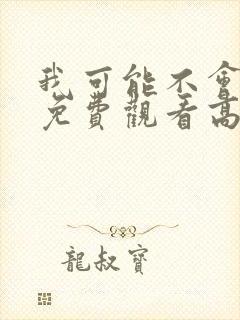 我可能不會
免費觀看高
龍叔寶